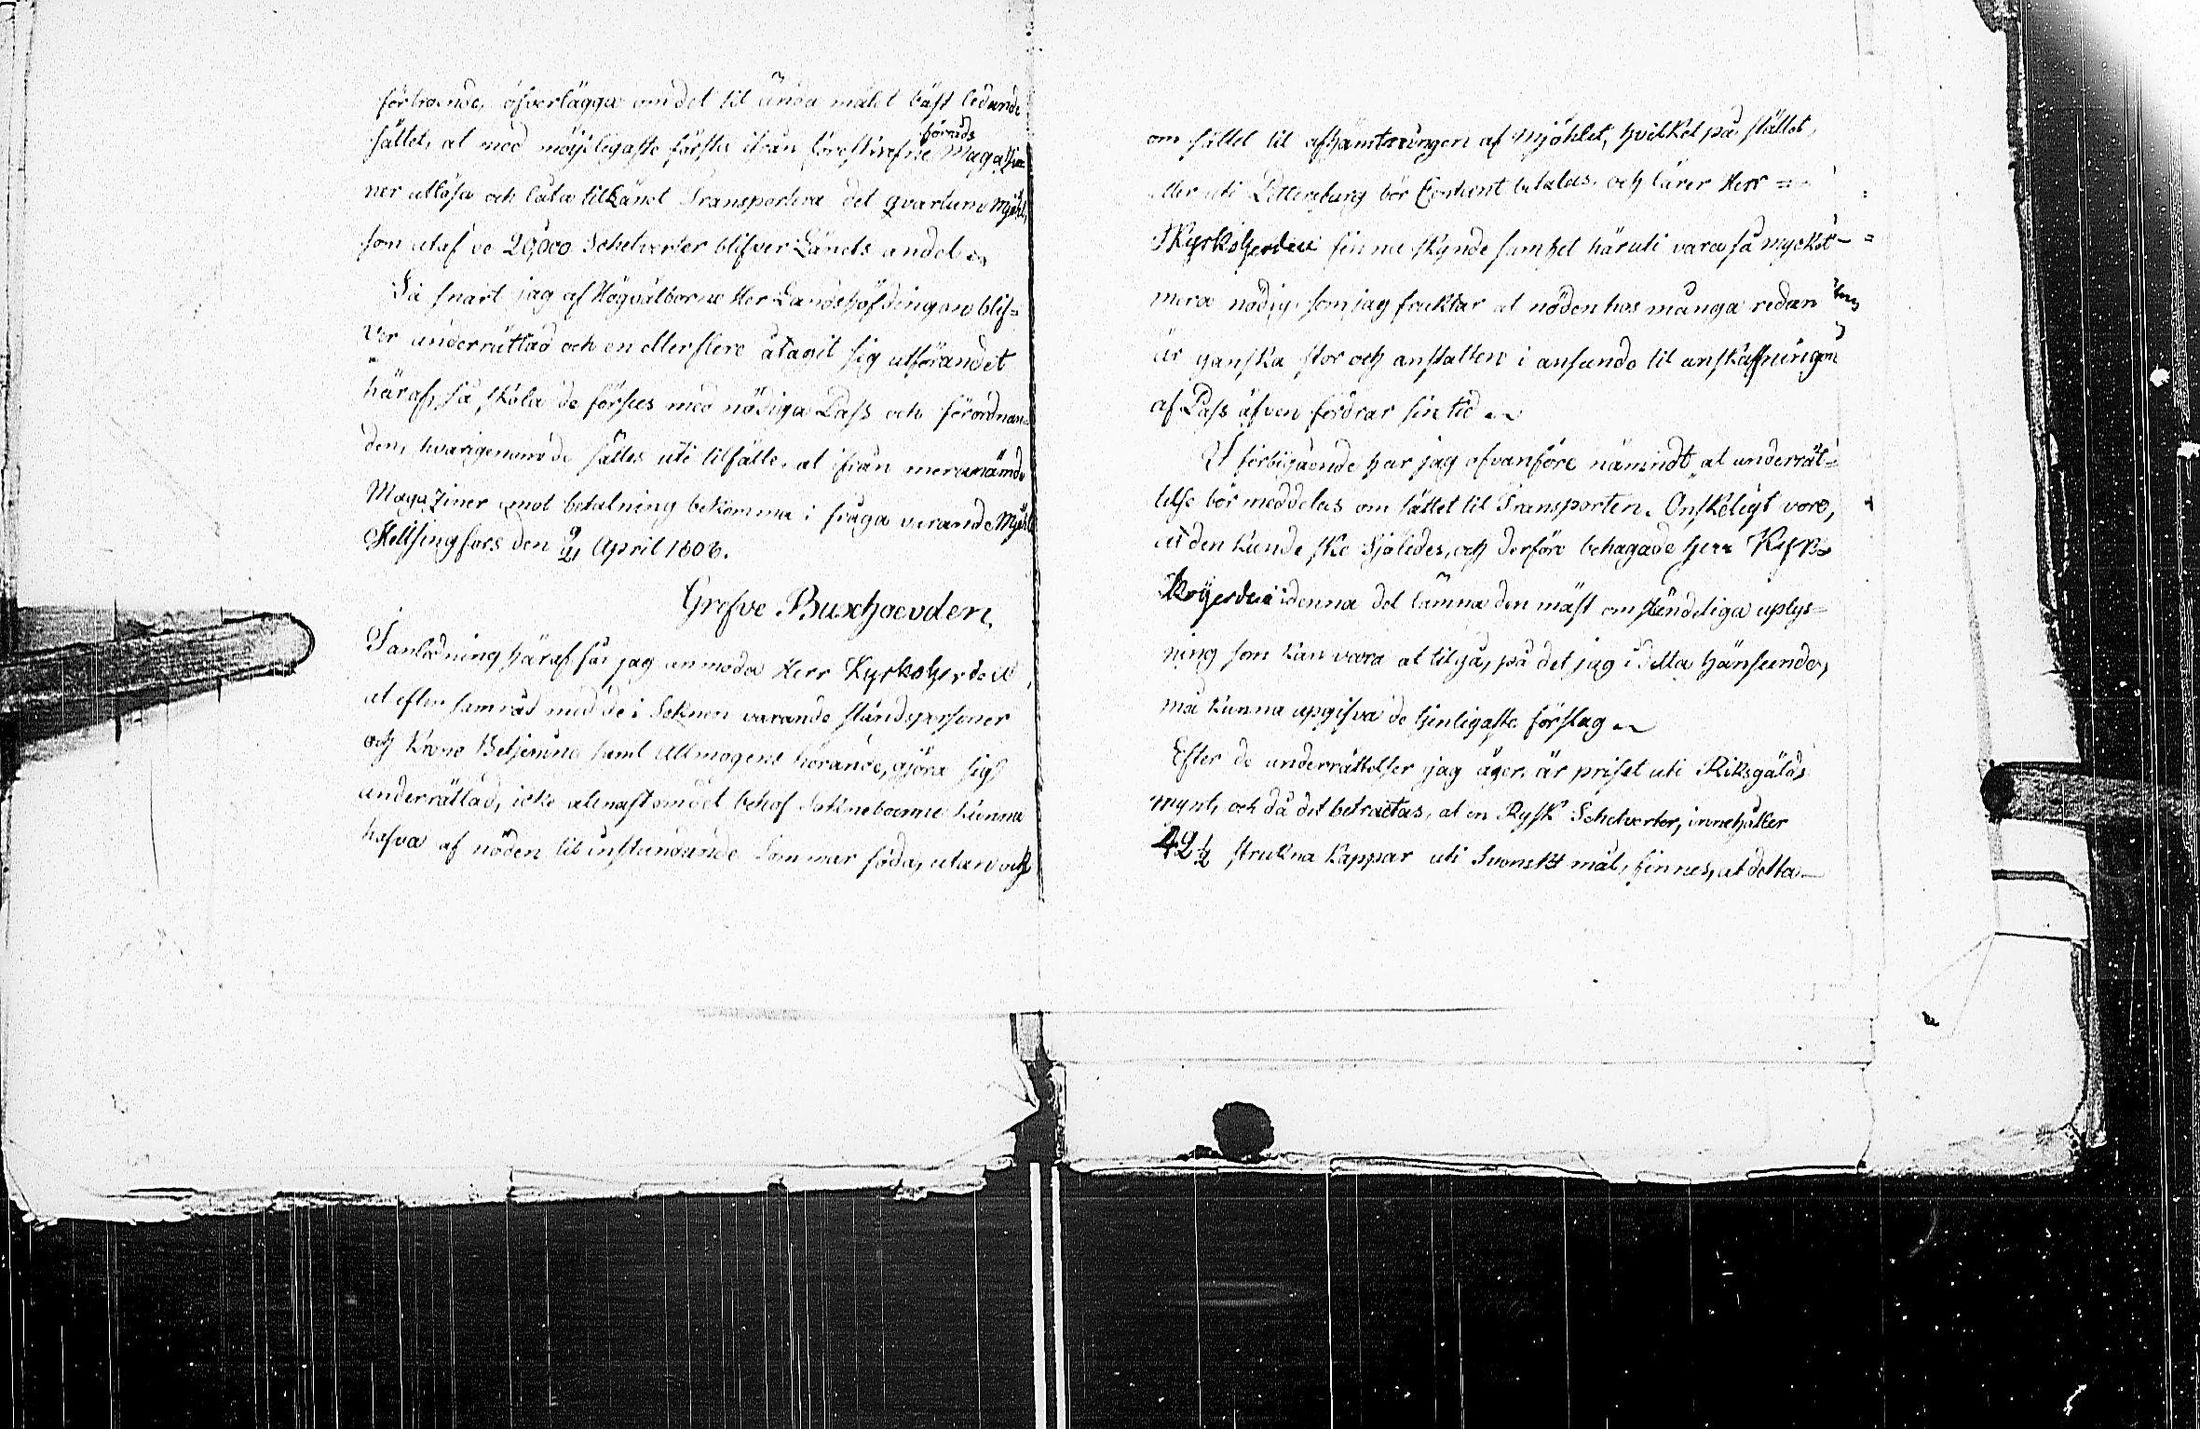 förtroende, öfverlägga om det til ända målet bäst ledande
sättet, at med möjeligaste första ifrån föreskrefne förråds Magazi
ner utlösa och låta til Länet Transportera det qvantum Mjöhl,
som utaf de 20,000 Schetverter blifver Länets andel.
Så snart jag af Högvälborne Herr Landshöfdingen blif=
ver underrättad och en eller flere åtagit sig utförandet
häraf, så skola de förses med nödiga Pass och förordnan=
den, hvarigenom de sättes uti tilfälle, at ifrån meranämde
Magaziner emot betalning bekomma i fråga varande Mjöhl
Hellsingfors den 9/21 April 1808.
Grefve Buxhoevden.
I anledning häraf får jag anmoda Herr Kyrkoherden
at efter samråd med de i Soknen varande ståndspersoner
och Krono Betjening samt Allmogens hörande, gjöra sig
underrättad, icke allenast om det behof Sokneboerne kunna
hafva af nöden til instundande Sommar föda, utan och
om sättet til afhämtningen af Mjöhlet, hvilket på stället,
eller uti Pettersburg bör Contant betalas, och lärer Herr =
Kyrkoherden finna skyndesamhet häruti vara så mycket =
mera nödig, som jag fruktar at nöden hos många redan
är ganska stor och anstalten i anseende til anskaffningen
af Pass äfven fordrar sin tid.
I förbigående har jag ofvanföre nämndt, at underrät=
telse bör meddelas om sättet til Transporten. Önskeligt vore,
at den kunde ske Sjöledes, och derföre behagade Herr Kyrko
herden i denna del lämna den mäst omständeliga uplys=
ning som kan vara at tilgå, på det jag i detta hänseende,
må kunna upgifva de tjenligaste förslag.
Efter de underrättelser jag äger, är priset uti Riksgälds
mynt, och då det betraktas, at en Rysk Schetverter, innehåller
42 1/2 strukna Kappar uti Svenskt mål, finnes, at detta